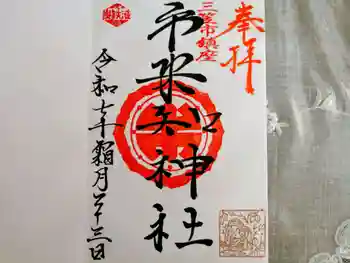 奉拝
三笠市鎮座
市来知神社
令和七年霜月二十三日